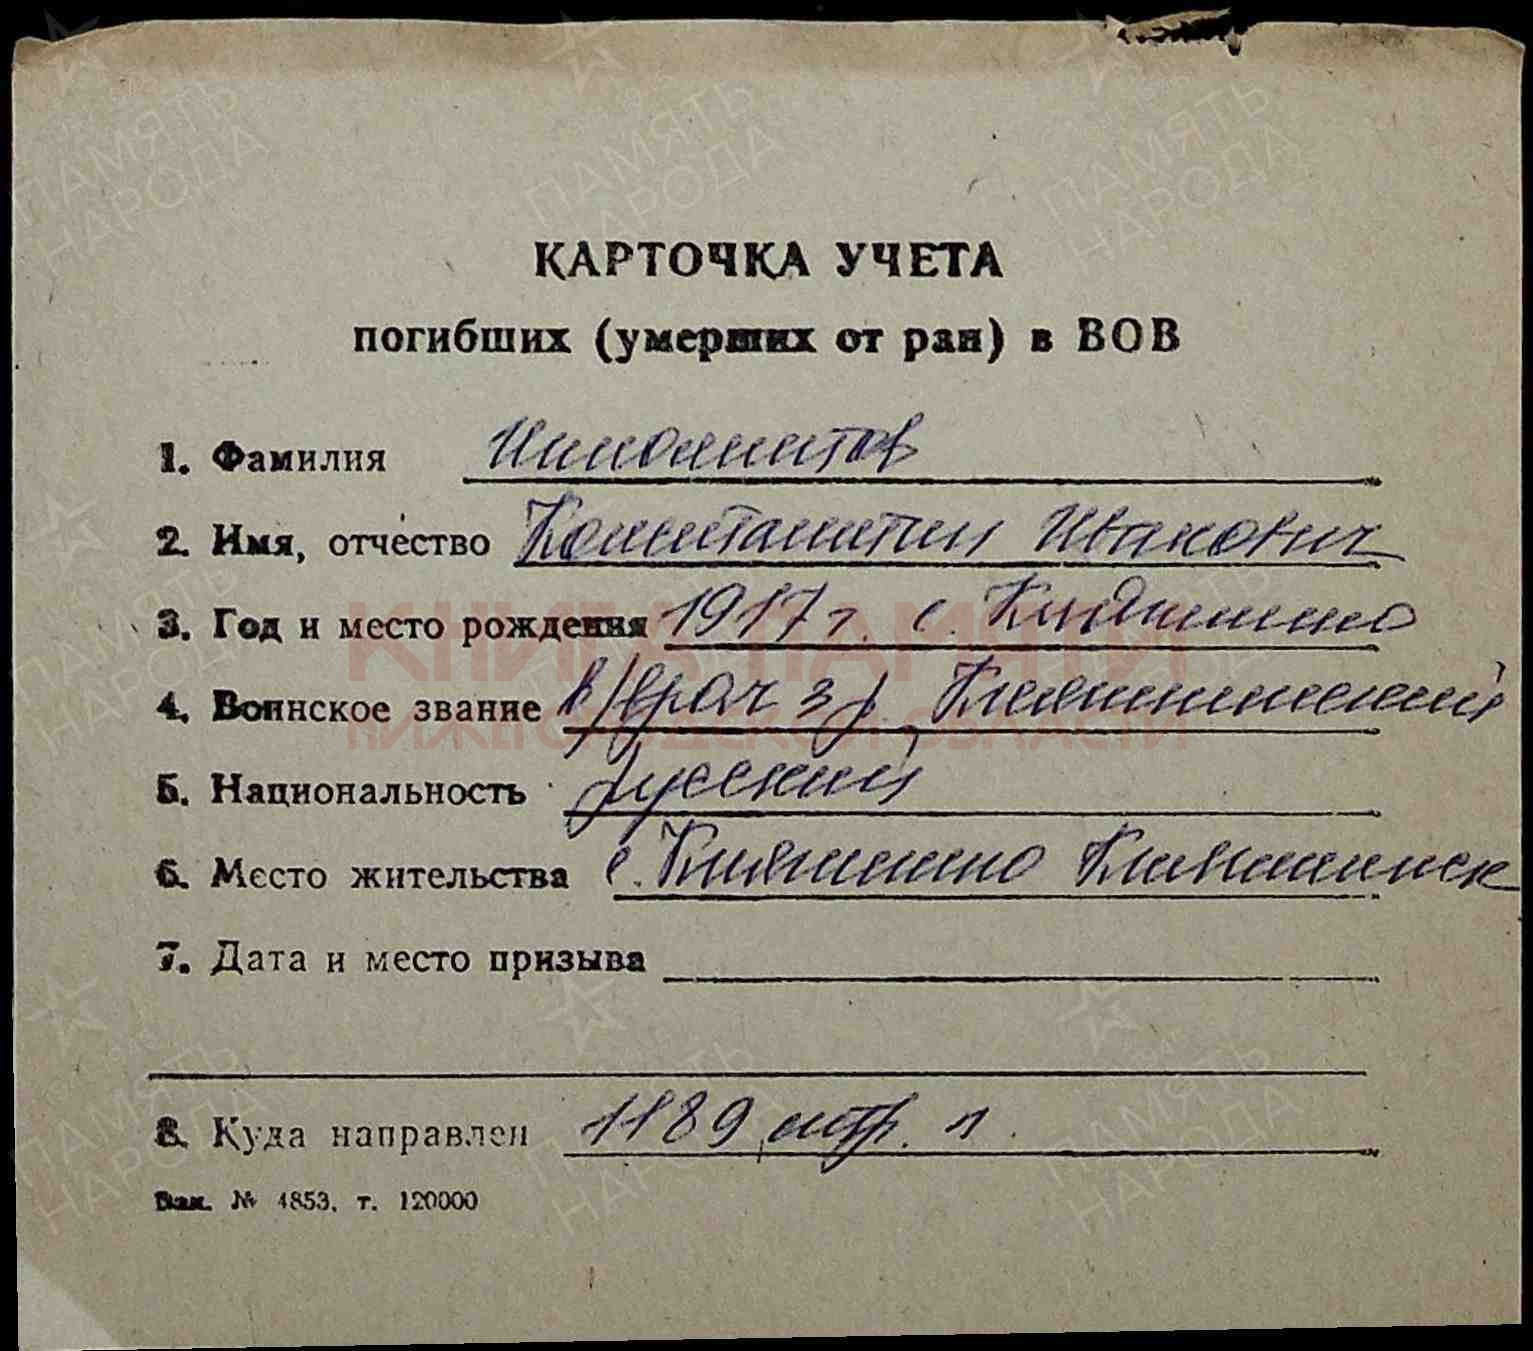 КАРТОЧКА УЧЕТА
погибших (умерших от ран) в ВОВ
1. Фамилия Ипполитов
2. Имя, отчество Константин Иванович
3. Год и место рождения 1917 г. с. Княгинино
4. Воинское звание в/врач 3 р. Княгининский
5. Национальность русский
6. Место жительства с. Княгинино Княгининск
7. Дата и место призыва
8. Куда направлен 1189 стр. п.
Зак. № 4853. т. 120000
КНИГА ПАМЯТИ
НИЖЕГОРОДСКОЙ ОБЛАСТИ
ПАМЯТЬ НАРОДА